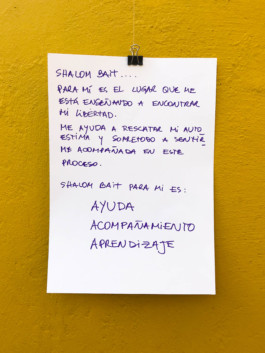 SHALOM BAIT....
PARA MÍ ES EL LUGAR QUE ME
ESTÁ ENSEÑANDO A ENCONTRAR
MI LIBERTAD.
ME AYUDA A RESCATAR MI AUTO
ESTIMA Y SOBRETODO A SENTIR_
ME ACOMPAÑADA EN ESTE
PROCESO.
SHALOM BAIT PARA MI ES:
AYUDA
ACOMPAÑAMIENTO
APRENDIZAJE